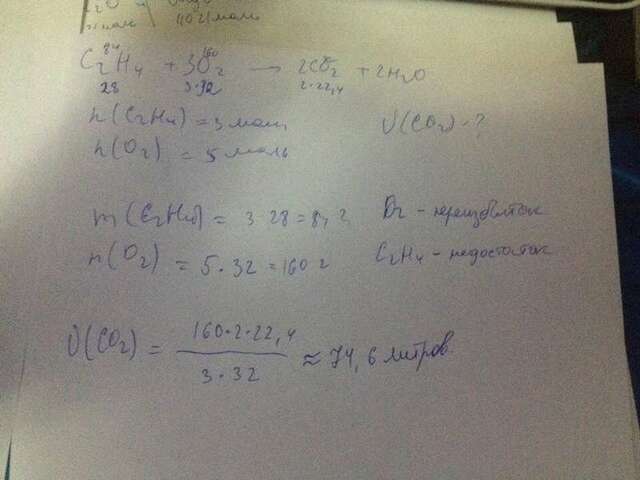 84 160
C₂H₄ + 3O₂ → 2CO₂ + 2H₂O
28 3·32 2·22,4
n(C₂H₄) = 3 моль V(CO₂) - ?
n(O₂) = 5 моль
m(C₂H₄) = 3·28 = 84 г O₂ - переизбыток
n(O₂) = 5·32 = 160 г C₂H₄ - недостаток
V(CO₂) = 160·2·22,4 / 3·32 ≈ 74,6 литров.